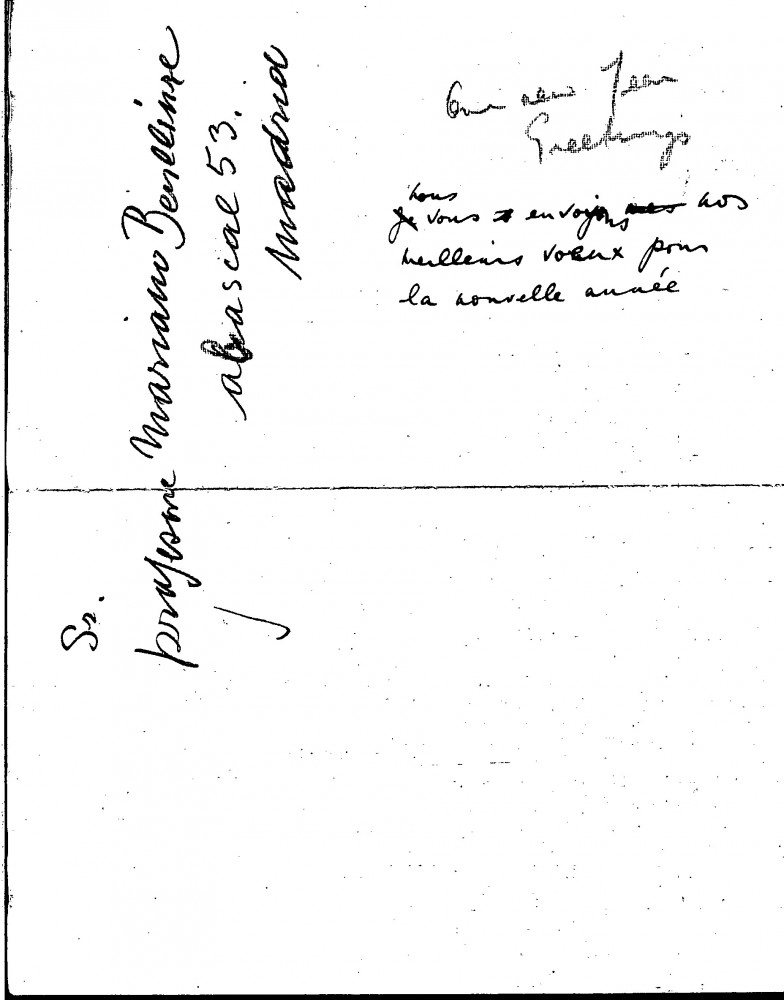 Our new Year
Greetings
nous
Je vous envoyons mes nos
meilleurs voeux pour
la nouvelle année
Sr.
professore Mariano Benlliure
abascal 53.
Madrid